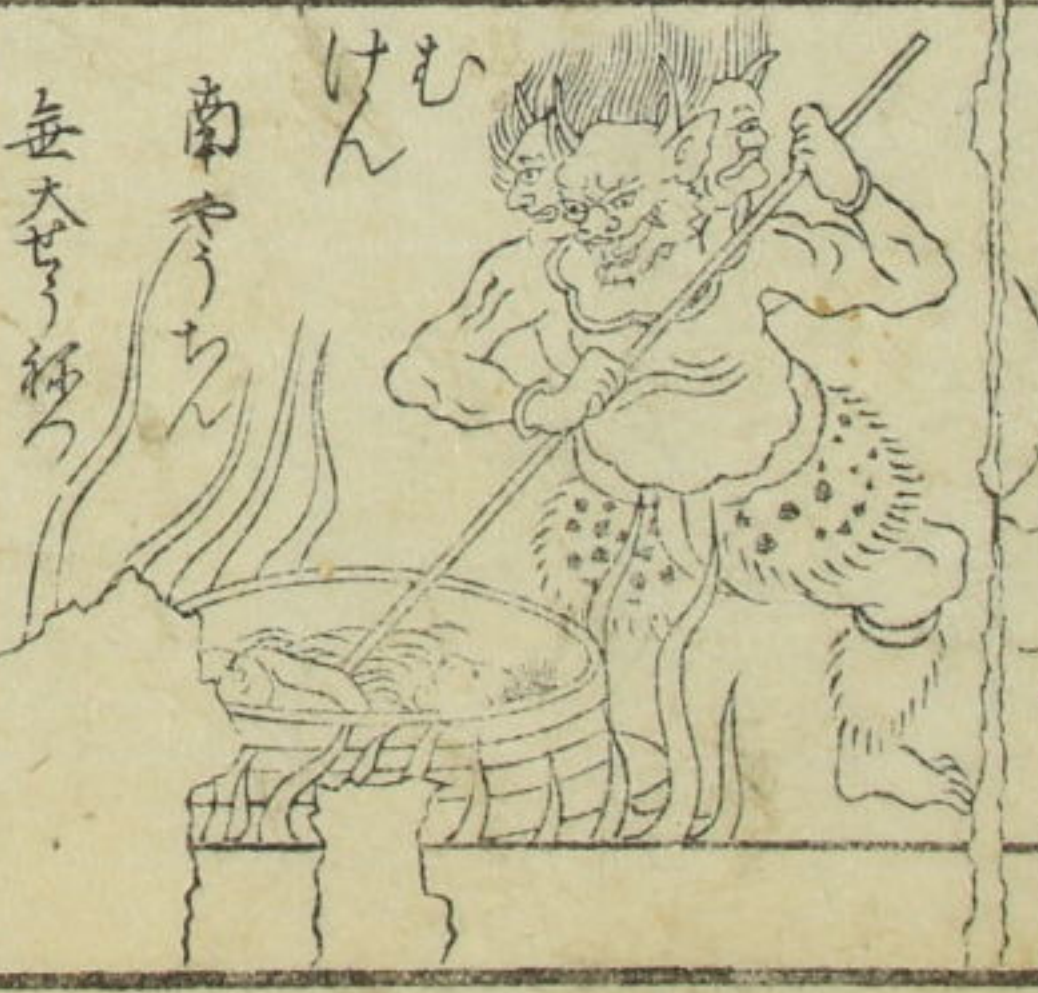 む
けん
南やうちん
無大せう祢つ